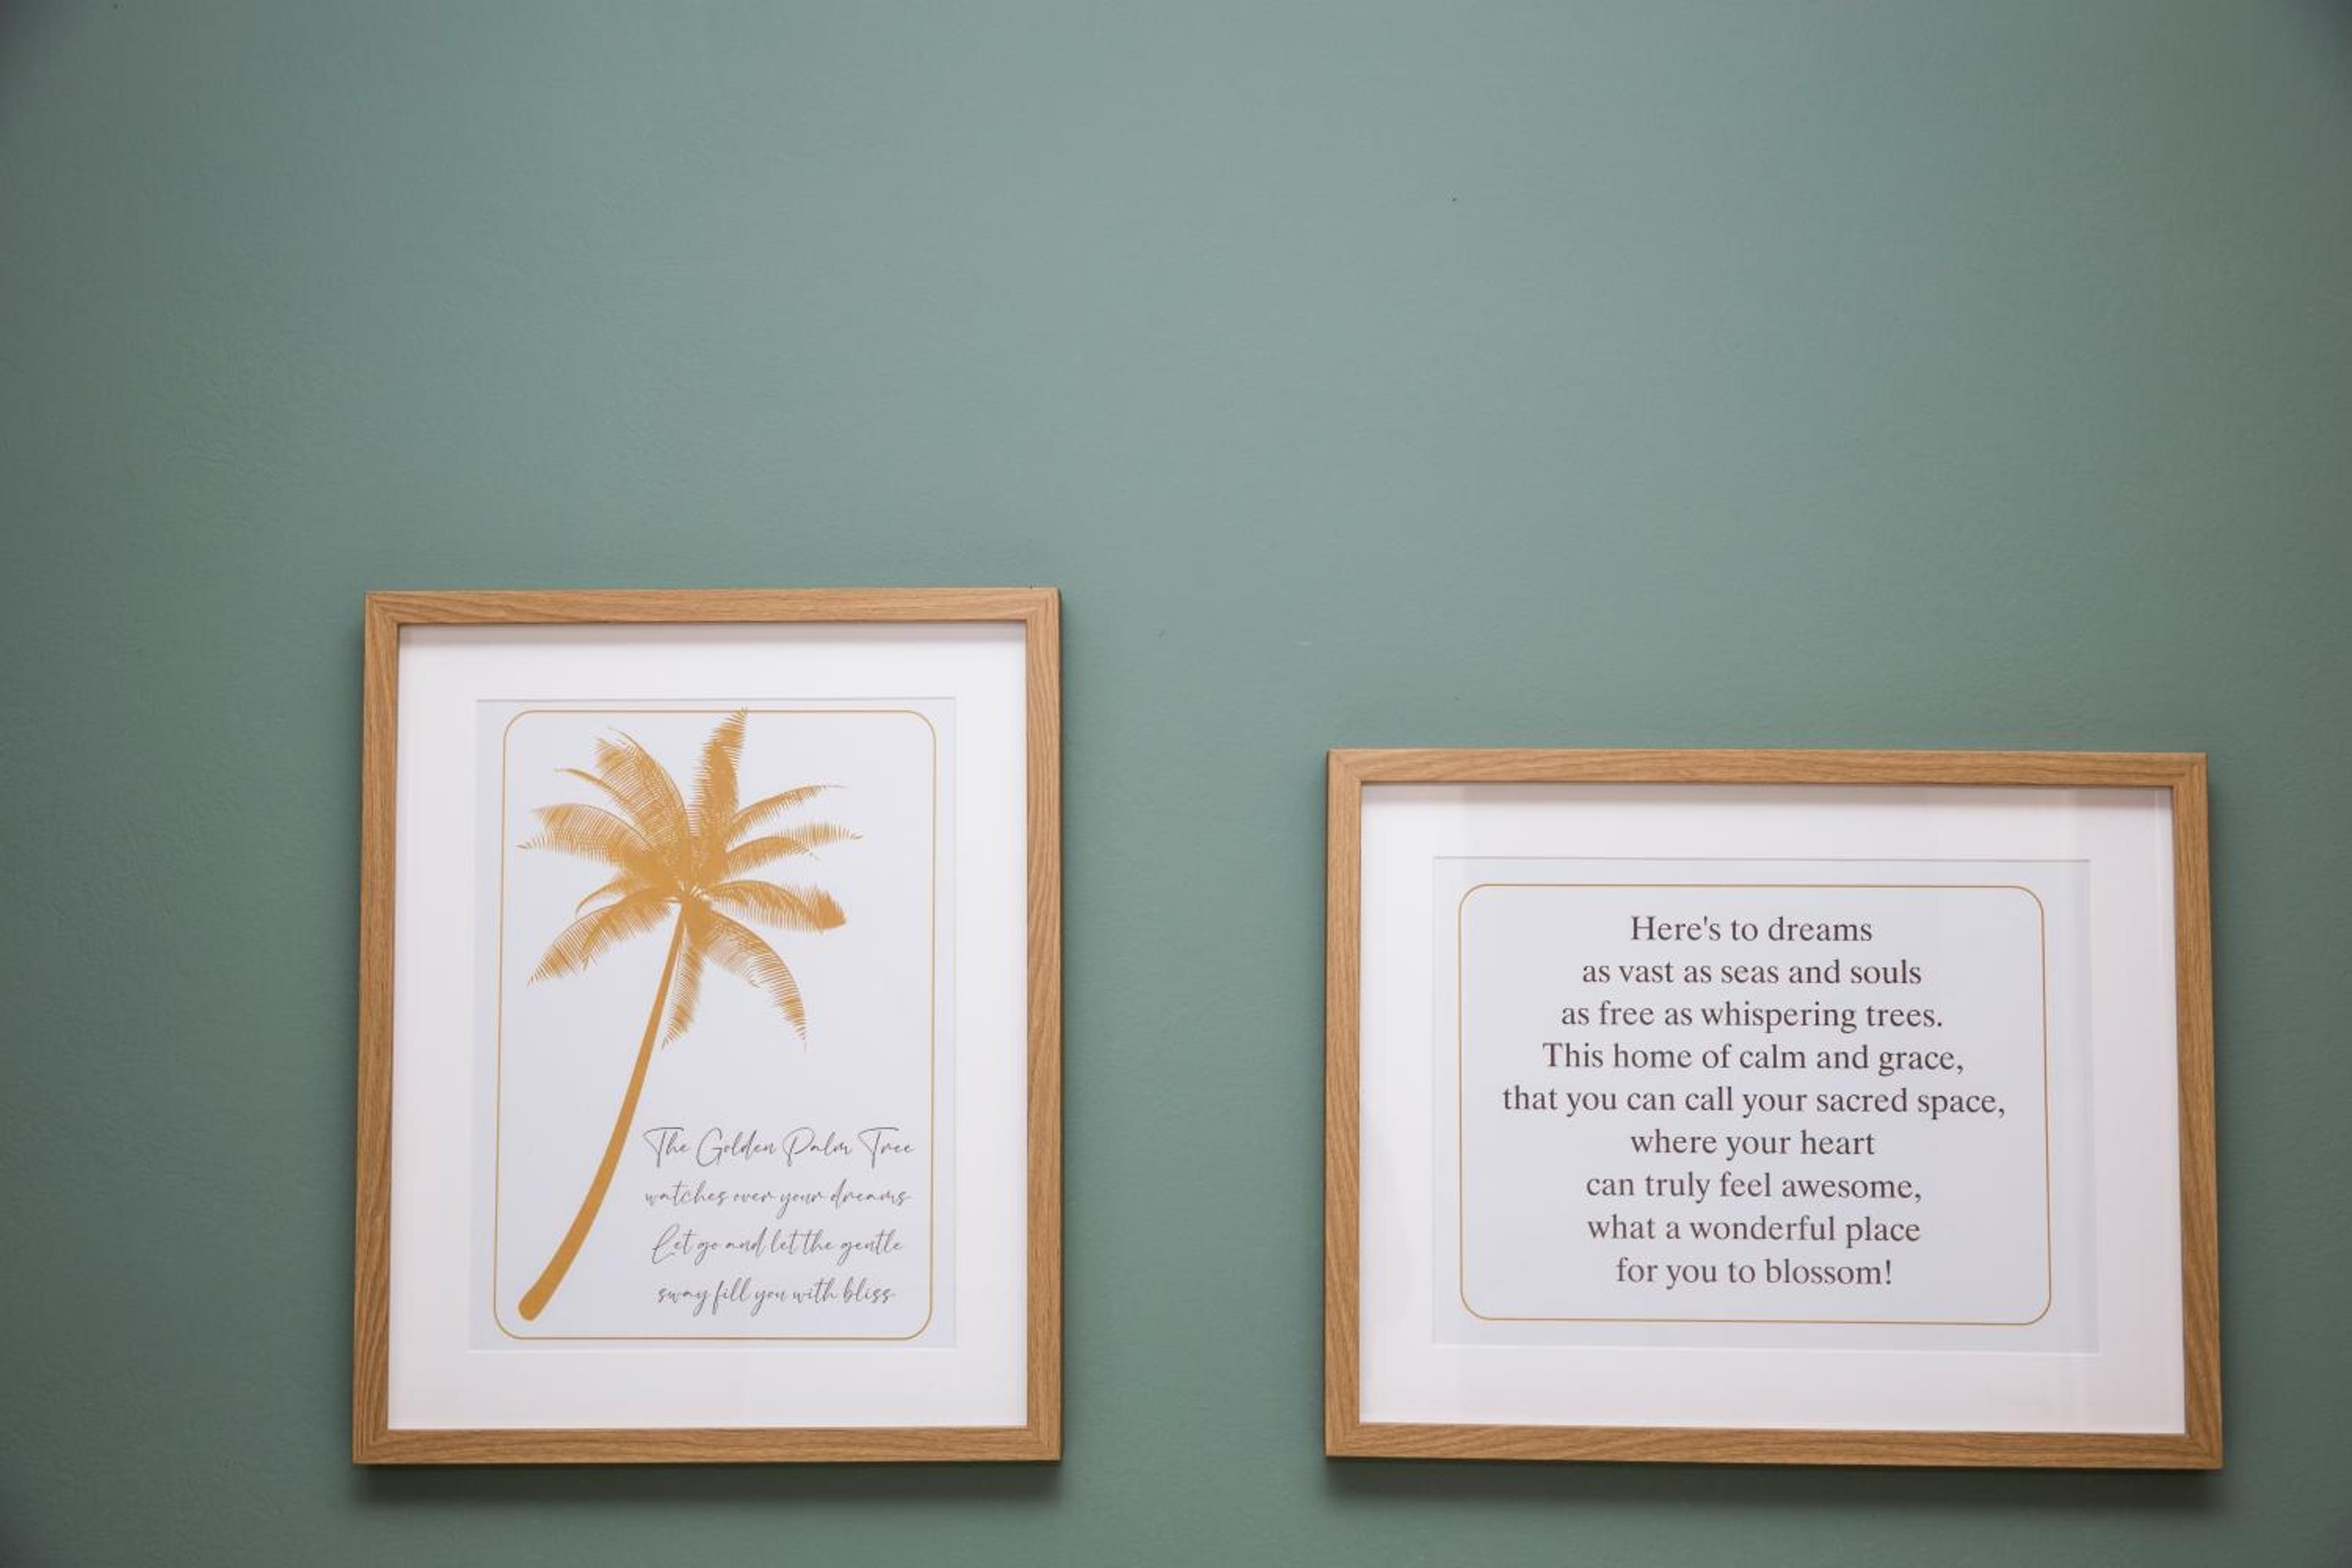 The Golden Palm Tree
watches over your dreams
Let go and let the gentle
sway fill you with bliss
Here's to dreams
as vast as seas and souls
as free as whispering trees.
This home of calm and grace,
that you can call your sacred space,
where your heart
can truly feel awesome,
what a wonderful place
for you to blossom!